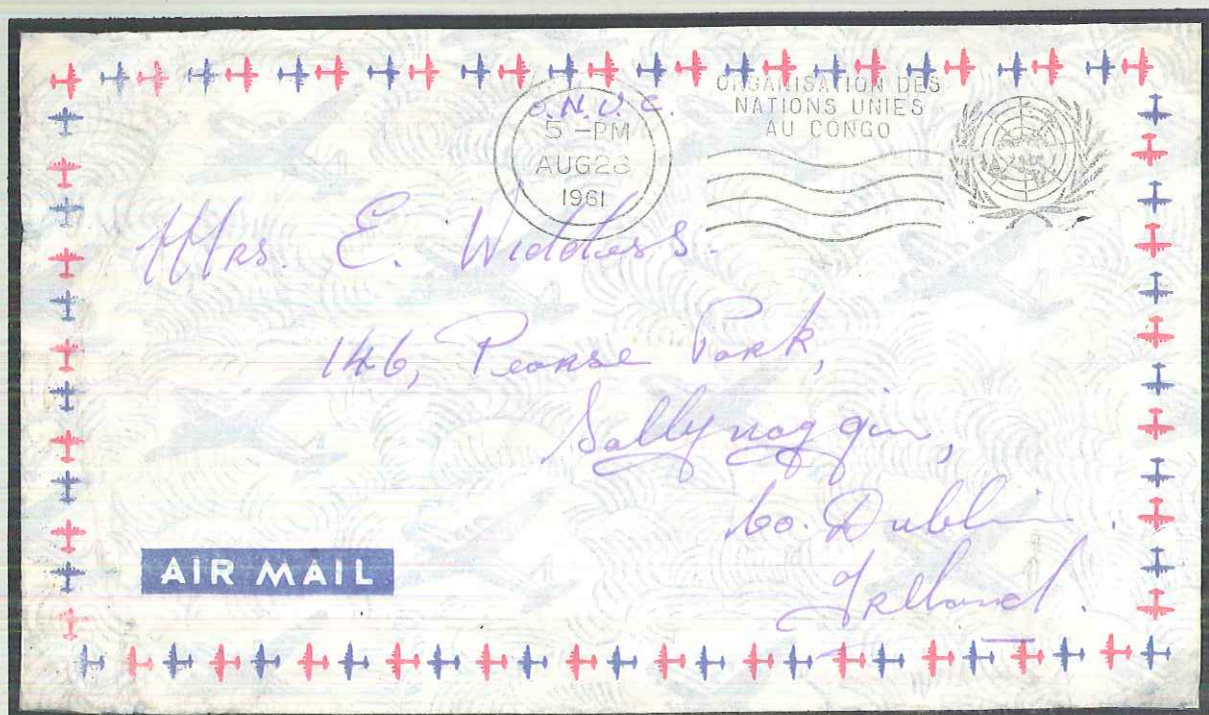 O.N.U.C.
5 - PM
AUG 28
1961
ORGANISATION DES
NATIONS UNIES
AU CONGO
Mrs. E. Widdess.
146, Pearse Park,
Sallynoggin,
Co. Dublin.
Ireland.
AIR MAIL